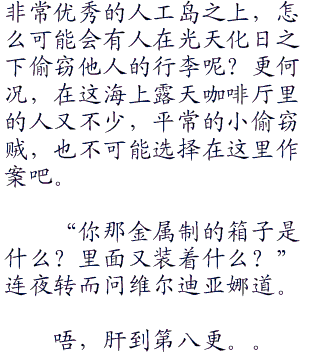 非常优秀的人工岛之上，怎
么可能会有人在光天化日之
下偷窃他人的行李呢？更何
况，在这海上露天咖啡厅里
的人又不少，平常的小偷窃
贼，也不可能选择在这里作
案吧。
“你那金属制的箱子是
什么？里面又装着什么？”
连夜转而问维尔迪亚娜道。
唔，肝到第八更。。